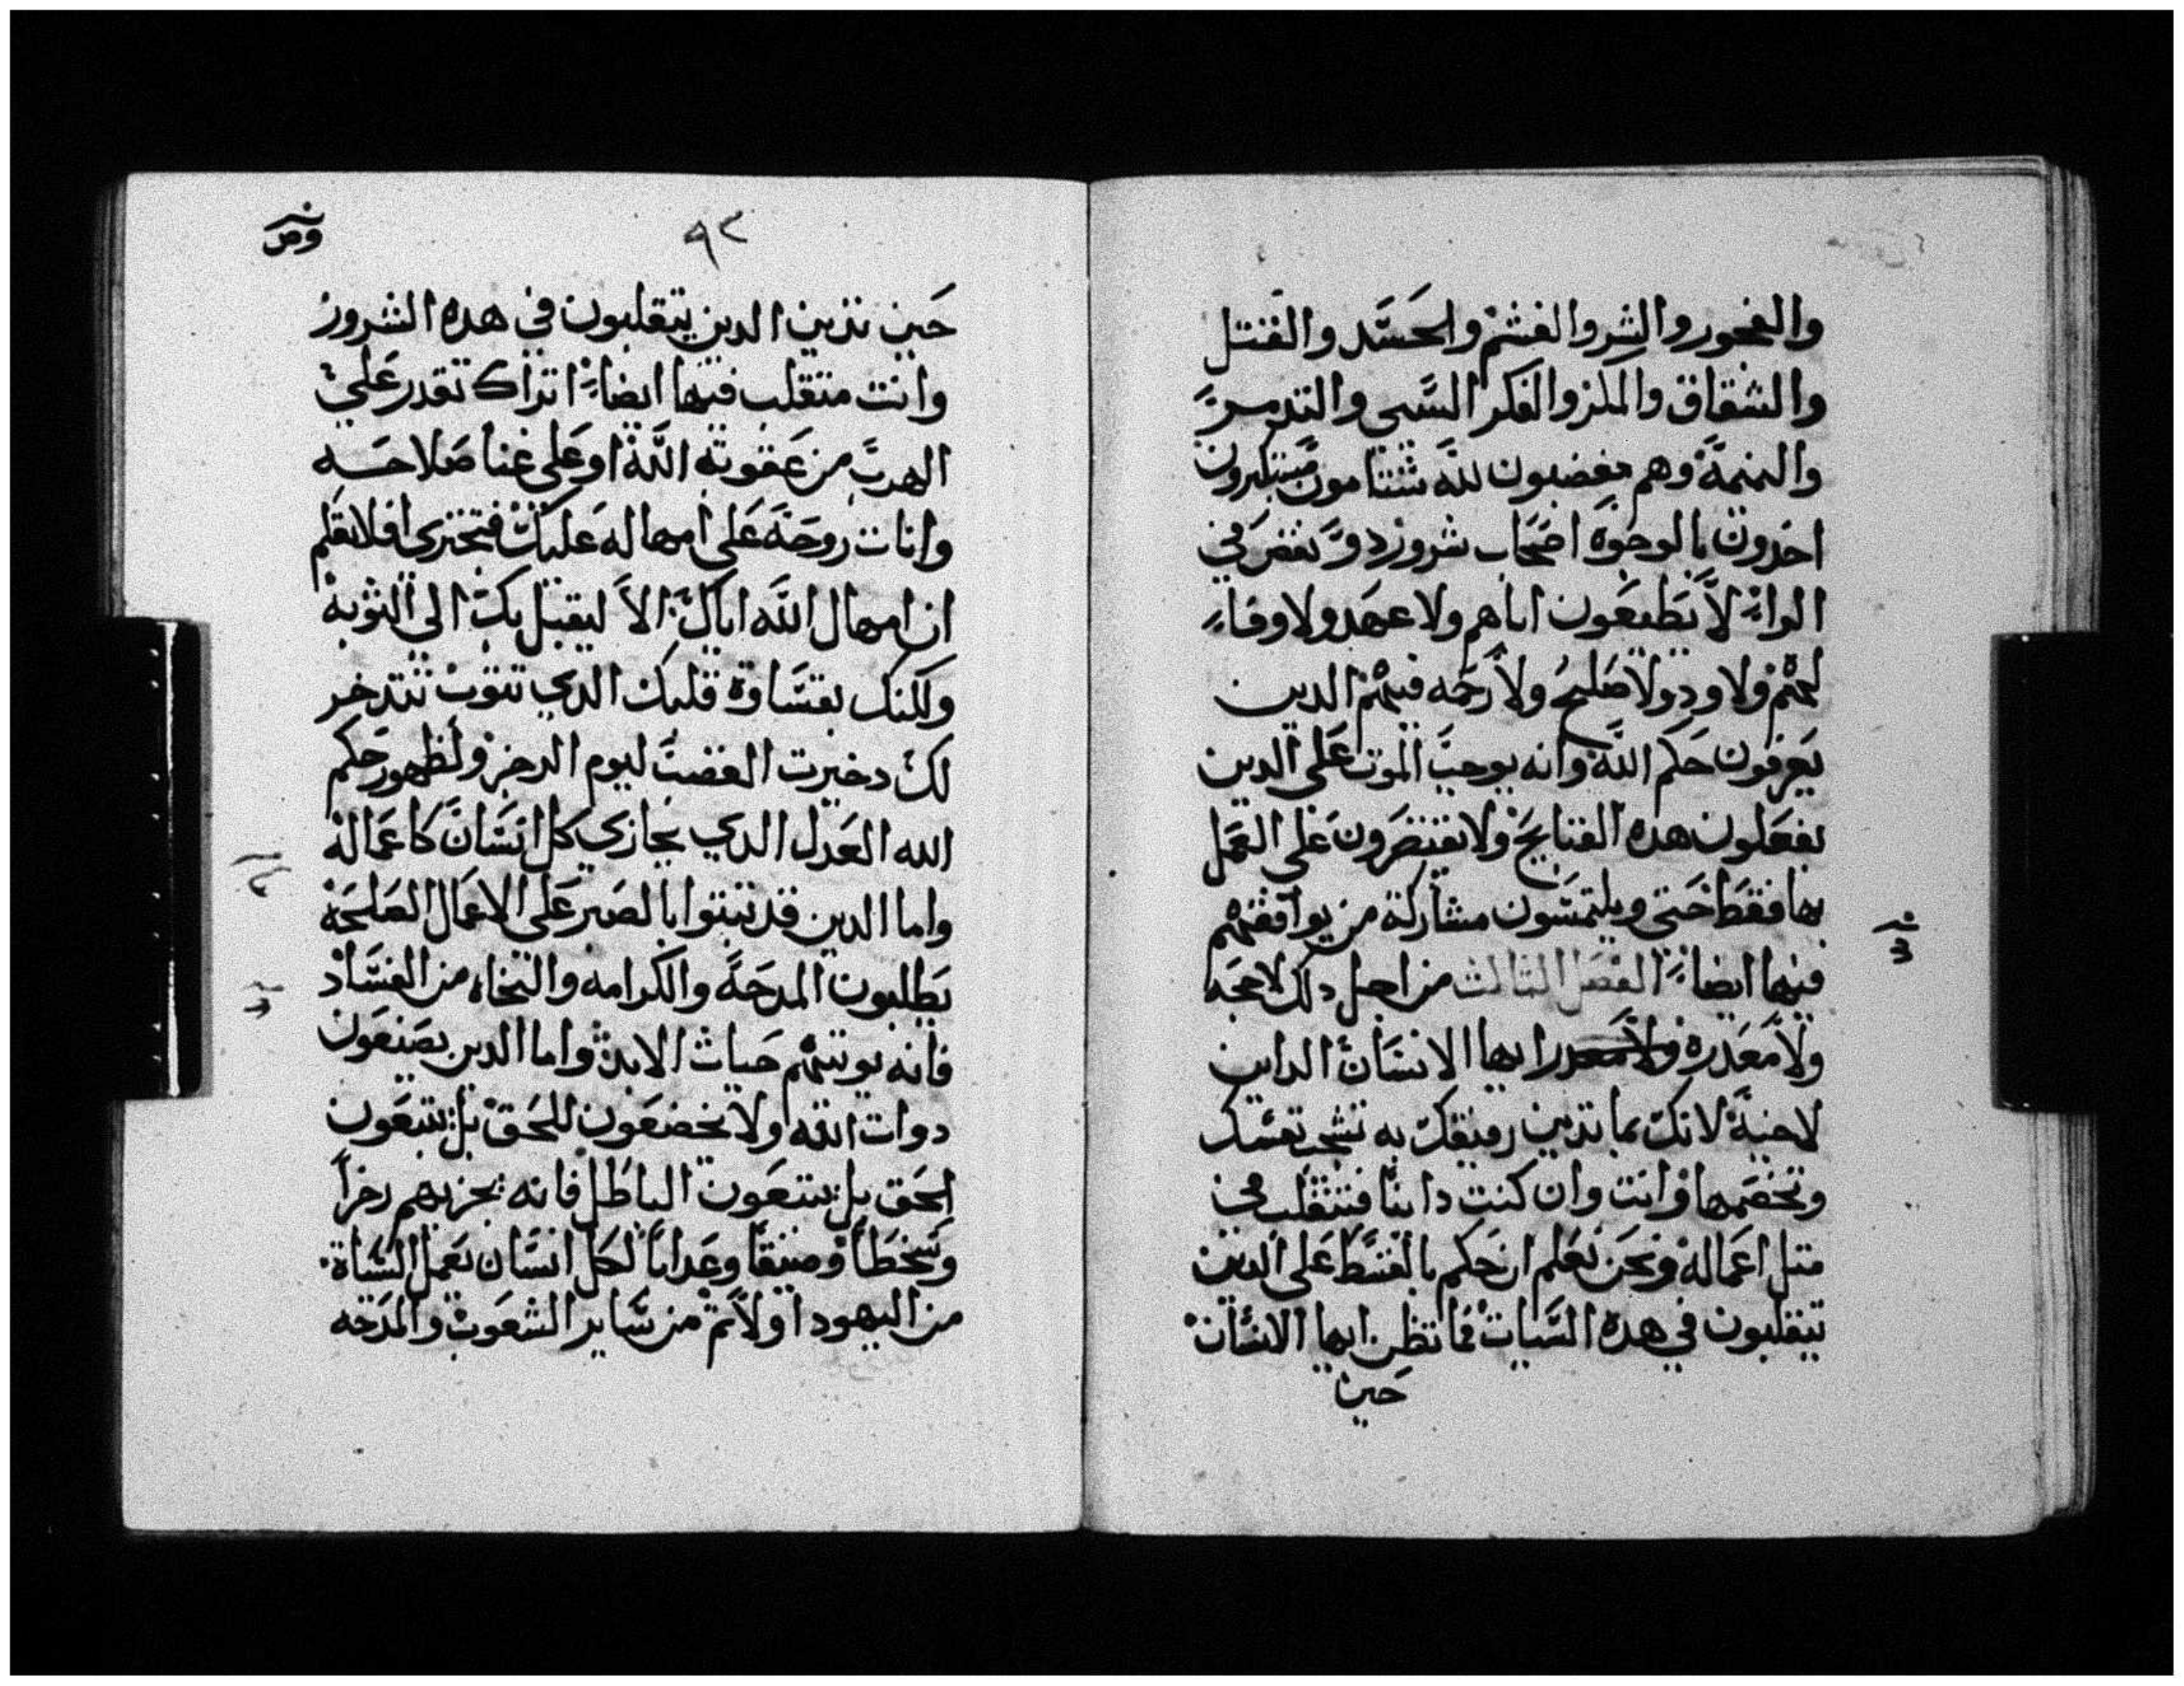 والفجور والشر والغشم والحسد والقتل
والشقاق والمكر والفكر السي والتدمر
والنميمة وهم مغضبون لله شتامون مستكبرون
اصحاب شرور دو نقص في
الراء لا يطيعون اباهم ولا عهد ولا وفاء
لهم ولا ود ولا صلح ولا رحمه فيهم الدين
يعرفون حكم الله وانه يوجب الموت على الدين
يفعلون هده القبايح ولا يقتصرون على العمل
بها فقط حتى ويلتمسون مشاركة من يوافقهم
فيها ايضاً الفصل التالت من اجل دلك لا حجه
ولا معدرة ايها الانسان الداين
لاخيه لانك بما تدين رفيقك به تشجب نفسك
وتخصمها وانت وان كنت داينا فتتقلب في
متل اعماله ونحن نعلم ان حكم بالقسط على الدين
يتقلبون في هده السيات فما تظن ايها الانسان
حين
٩٢
حين تدين الدين يتقلبون في هده الشرور
وانت متقلب فيها ايضاً اتراك تقدر علي
الهرب من عقوبة الله او على غنا صلاحه
وانات روحه على امهاله عليك فتجتري افلا تعلم
ان امهال الله اياك الا ليقبل بك الي التوبه
ولكنك بقساوة قلبك الدي تتوب تتدخر
لك دخيرت الغضب ليوم الرجز ولظهور حكم
الله العدل الدي يجازي كل انسان كاعماله
واما الدين قد تبتوا بالصبر على الاعمال الصالحه
يطلبون المدحة والكرامه والنجاه من الفساد
فانه يوتيهم حيات الابد واما الدين يصنعون
دوات انفه ولا يخضعون للحق بل يتبعون
الحق بل يتبعون الباطل فانه يجزيهم رجزاً
وسخطاً وضيقاً وعداباً لكل انسان يعمل السياة
من اليهود اولاً تم من ساير الشعوب والمدحه